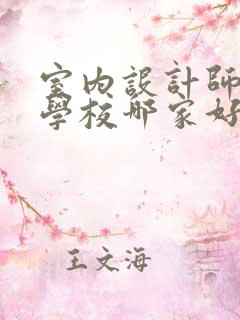 室内設計師
學校哪家好
王文海